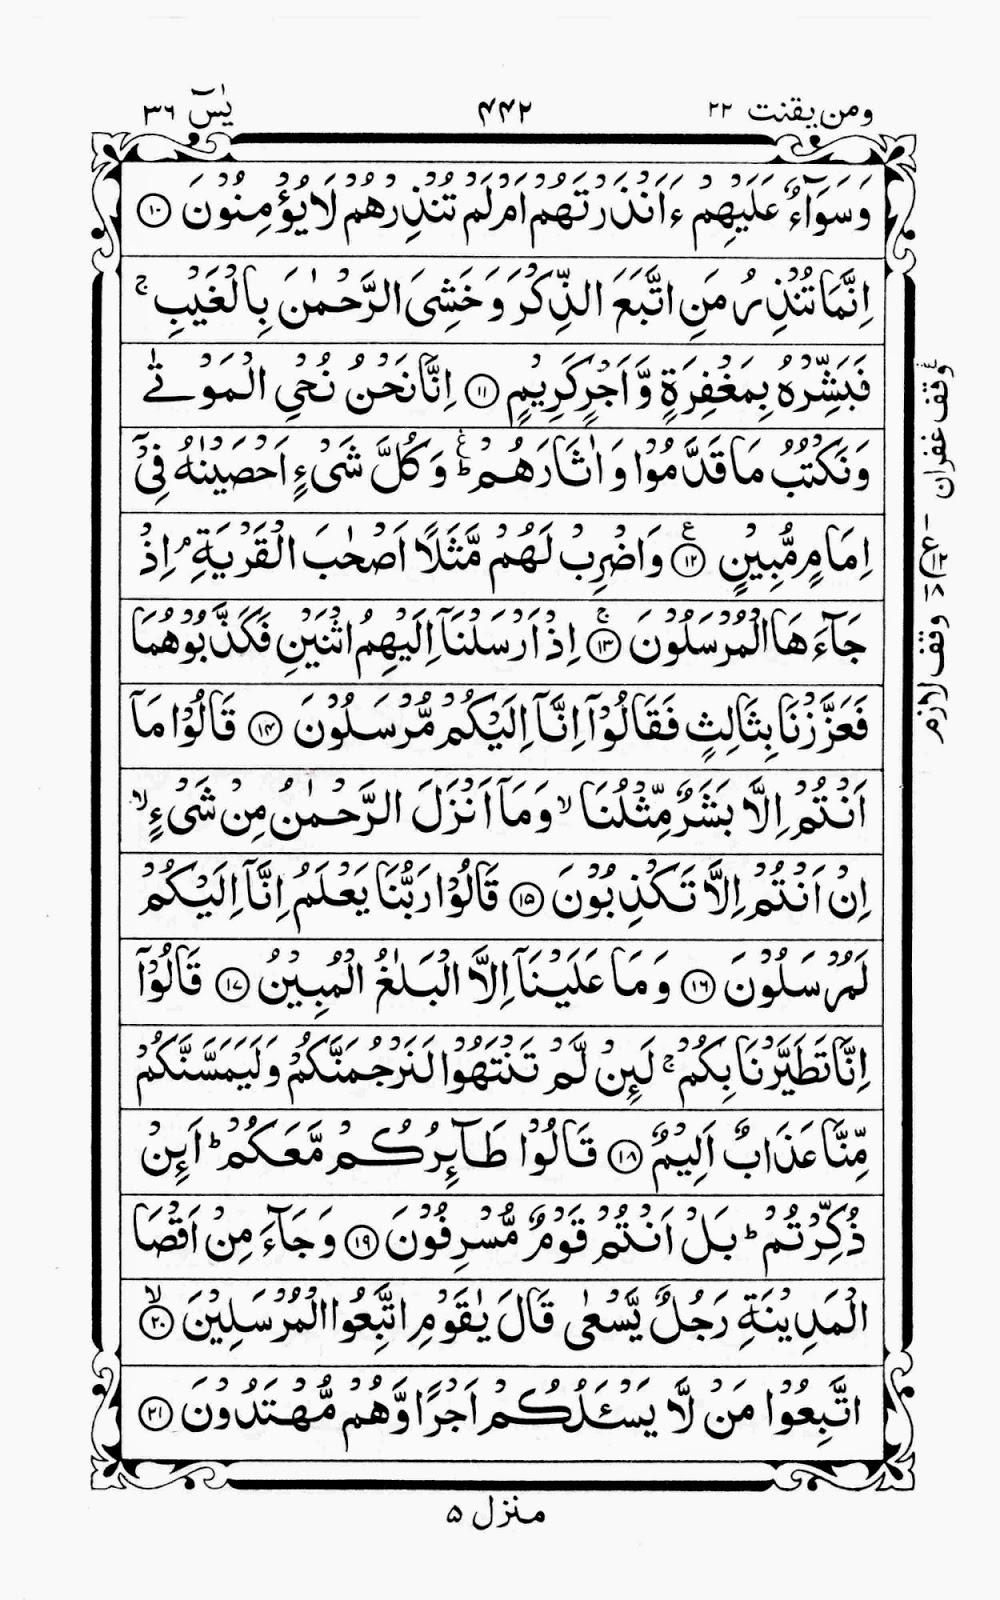 ومن يقنت ٢٢
٤٤٢
يٰسٓ ٣٦
وَسَوَآءٌ عَلَيْهِمْ ءَاَنْذَرْتَهُمْ اَمْ لَمْ تُنْذِرْهُمْ لَا يُؤْمِنُوْنَ ۝١٠
اِنَّمَا تُنْذِرُ مَنِ اتَّبَعَ الذِّكْرَ وَخَشِىَ الرَّحْمٰنَ بِالْغَيْبِ ۚ
فَبَشِّرْهُ بِمَغْفِرَةٍ وَّاَجْرٍ كَرِيْمٍ ۝١١ اِنَّا نَحْنُ نُحْيِ الْمَوْتٰى
وَنَكْتُبُ مَا قَدَّمُوْا وَاٰثَارَهُمْ ؕ وَكُلَّ شَىْءٍ اَحْصَيْنٰهُ فِىْٓ
اِمَامٍ مُّبِيْنٍ ۝١٢ وَاضْرِبْ لَهُمْ مَّثَلًا اَصْحٰبَ الْقَرْيَةِ ۘ اِذْ
جَآءَهَا الْمُرْسَلُوْنَ ۝١٣ اِذْ اَرْسَلْنَآ اِلَيْهِمُ اثْنَيْنِ فَكَذَّبُوْهُمَا
فَعَزَّزْنَا بِثَالِثٍ فَقَالُوْٓا اِنَّآ اِلَيْكُمْ مُّرْسَلُوْنَ ۝١٤ قَالُوْا مَآ
اَنْتُمْ اِلَّا بَشَرٌ مِّثْلُنَا ۙ وَمَآ اَنْزَلَ الرَّحْمٰنُ مِنْ شَىْءٍ ۙ
اِنْ اَنْتُمْ اِلَّا تَكْذِبُوْنَ ۝١٥ قَالُوْا رَبُّنَا يَعْلَمُ اِنَّآ اِلَيْكُمْ
لَمُرْسَلُوْنَ ۝١٦ وَمَا عَلَيْنَآ اِلَّا الْبَلٰغُ الْمُبِيْنُ ۝١٧ قَالُوْٓا
اِنَّا تَطَيَّرْنَا بِكُمْ ۚ لَئِنْ لَّمْ تَنْتَهُوْا لَنَرْجُمَنَّكُمْ وَلَيَمَسَّنَّكُمْ
مِّنَّا عَذَابٌ اَلِيْمٌ ۝١٨ قَالُوْا طَآئِرُكُمْ مَّعَكُمْ ؕ اَئِنْ
ذُكِّرْتُمْ ؕ بَلْ اَنْتُمْ قَوْمٌ مُّسْرِفُوْنَ ۝١٩ وَجَآءَ مِنْ اَقْصَا
الْمَدِيْنَةِ رَجُلٌ يَّسْعٰى قَالَ يٰقَوْمِ اتَّبِعُوا الْمُرْسَلِيْنَ ۙ‏۝٢٠
اتَّبِعُوْا مَنْ لَّا يَسْـَٔلُكُمْ اَجْرًا وَّهُمْ مُّهْتَدُوْنَ ۝٢١
وقف غفران
ع ١٢
وقف لازم
منزل ٥